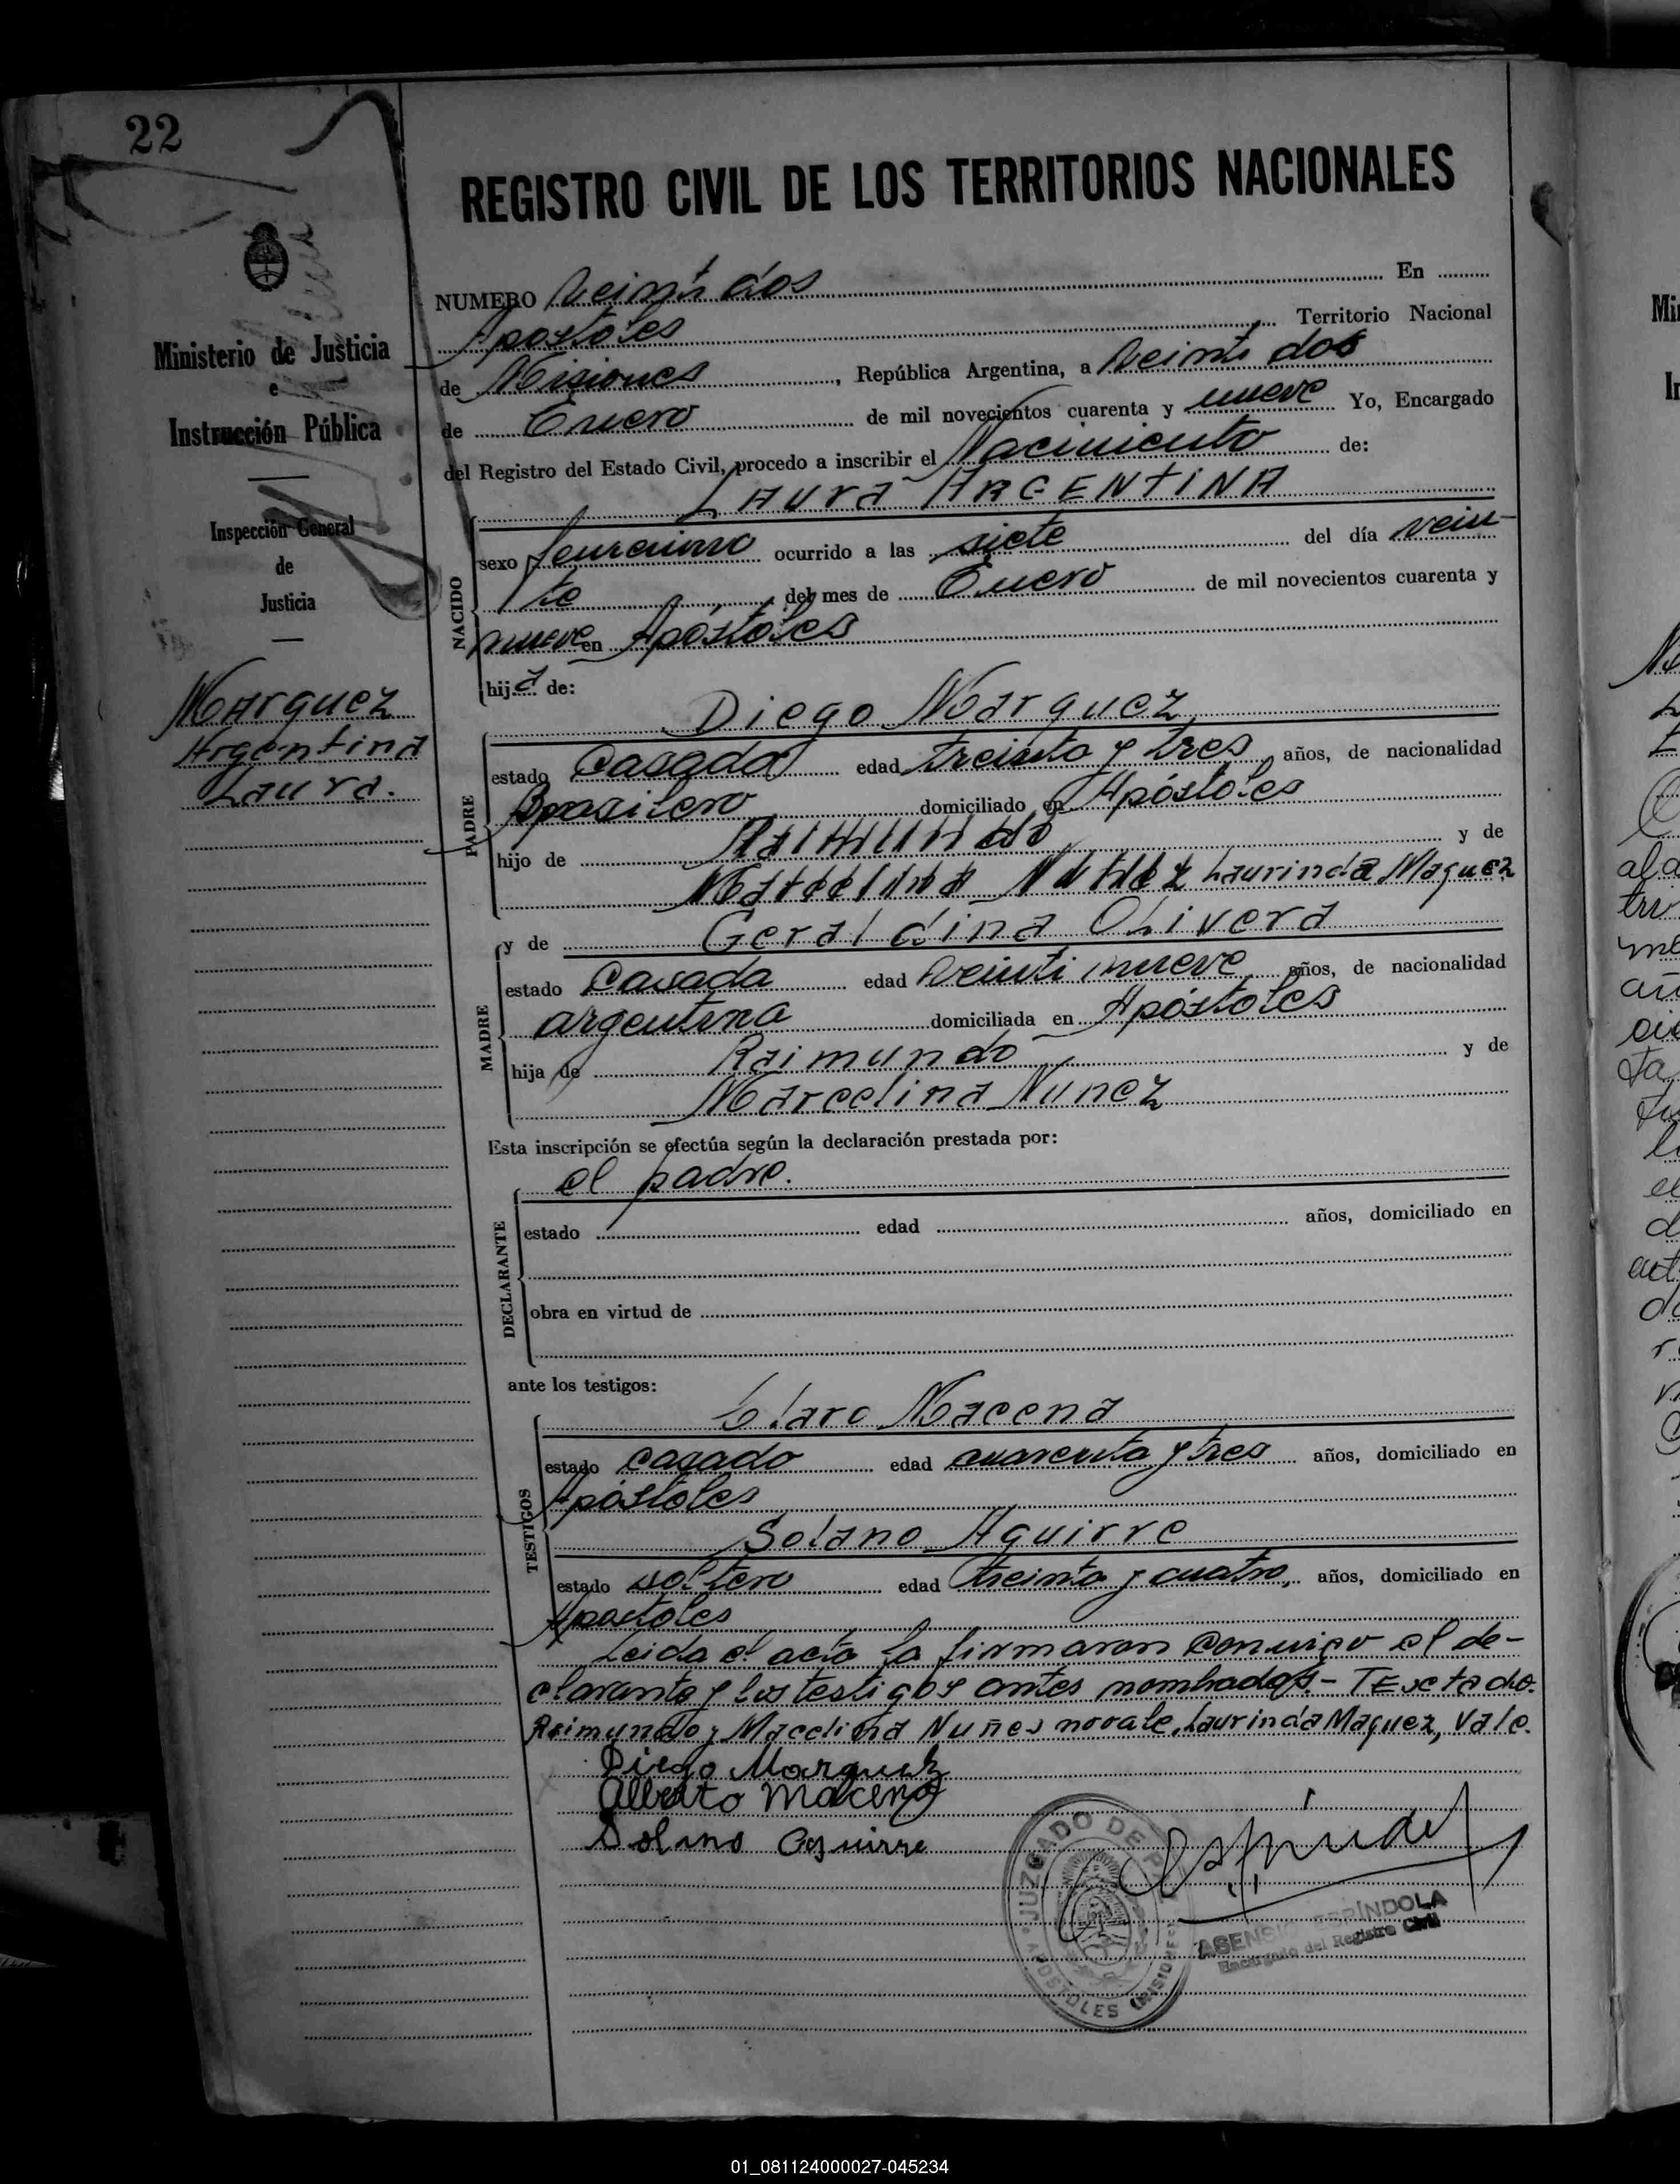 22
REGISTRO CIVIL DE LOS TERRITORIOS NACIONALES
NUMERO Veinti dos En
Apostoles Territorio Nacional
de Misiones, República Argentina, a Veinti dos
de Enero de mil novecientos cuarenta y nueve Yo, Encargado
del Registro del Estado Civil, procedo a inscribir el Nacimiento de:
Laura ARGENTINA
sexo femenino ocurrido a las siete del día vein-
te del mes de Enero de mil novecientos cuarenta y
nueve en Apóstoles
hija de:
Diego Marquez
estado Casado edad treinta y tres años, de nacionalidad
Brasilero domiciliado en Apóstoles
hijo de Raimundo y de
Marcelina Nuñez Laurinda Maquez
y de Geraldina Olivera
estado Casada edad Veinti nueve años, de nacionalidad
argentina domiciliada en Apóstoles
hija de Raimundo y de
Marcelina Nunez
Esta inscripción se efectúa según la declaración prestada por:
el padre.
estado edad años, domiciliado en
obra en virtud de
ante los testigos:
Claro Macena
estado casado edad cuarenta y tres años, domiciliado en
Apóstoles
Solano Aguirre
estado soltero edad treinta y cuatro, años, domiciliado en
Apostoles
Leida el acta la firmaron conmigo el de-
clarante y los testigos antes nombrados.- TEstado.
Raimundo y Macelina Nuñes novale, Laurinda Maquez, Vale.
Diego Marquez
Alberto Macena
Solano Aguirre
JUZGADO DE P
APOSTOLES (MISIONES)
ASENSIO ESPÍNDOLA
Encargado del Registro Civil
Ministerio de Justicia
e
Instrucción Pública
Inspección General
de
Justicia
Marquez
Argentina
Laura.
NACIDO
PADRE
MADRE
DECLARANTE
TESTIGOS
01_081124000027-045234